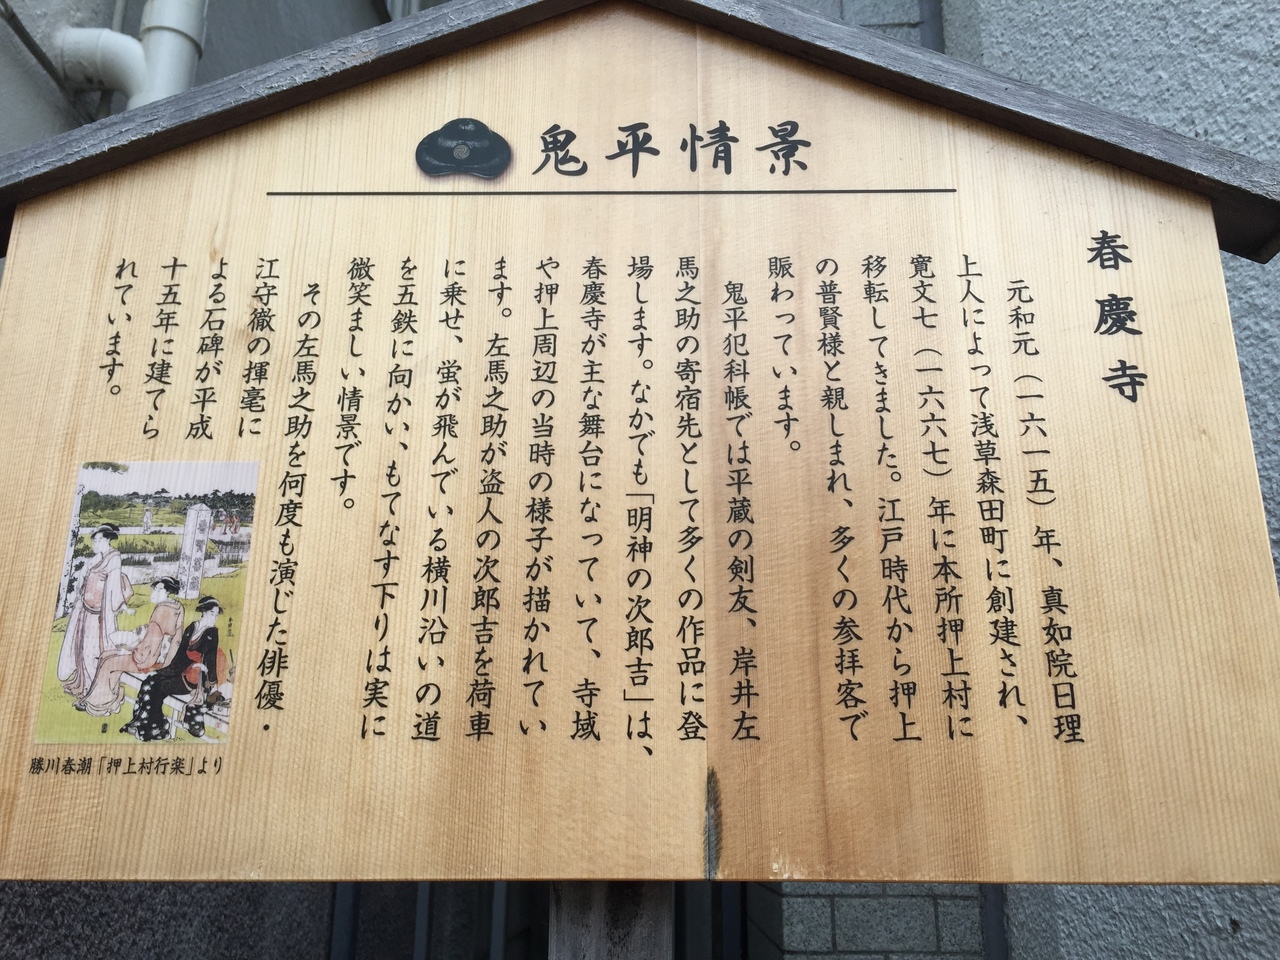 鬼平情景
春慶寺
元和元（一六一五）年、真如院日理
上人によって浅草森田町に創建され、
寛文七（一六六七）年に本所押上村に
移転してきました。江戸時代から押上
の普賢様と親しまれ、多くの参拝客で
賑わっています。
鬼平犯科帳では平蔵の剣友、岸井左
馬之助の寄宿先として多くの作品に登
場します。なかでも「明神の次郎吉」は、
春慶寺が主な舞台になっていて、寺域
や押上周辺の当時の様子が描かれてい
ます。左馬之助が盗人の次郎吉を荷車
に乗せ、蛍が飛んでいる横川沿いの道
を五鉄に向かい、もてなす下りは実に
微笑ましい情景です。
その左馬之助を何度も演じた俳優・
江守徹の揮毫に
よる石碑が平成
十五年に建てら
れています。
勝川春潮「押上村行楽」より